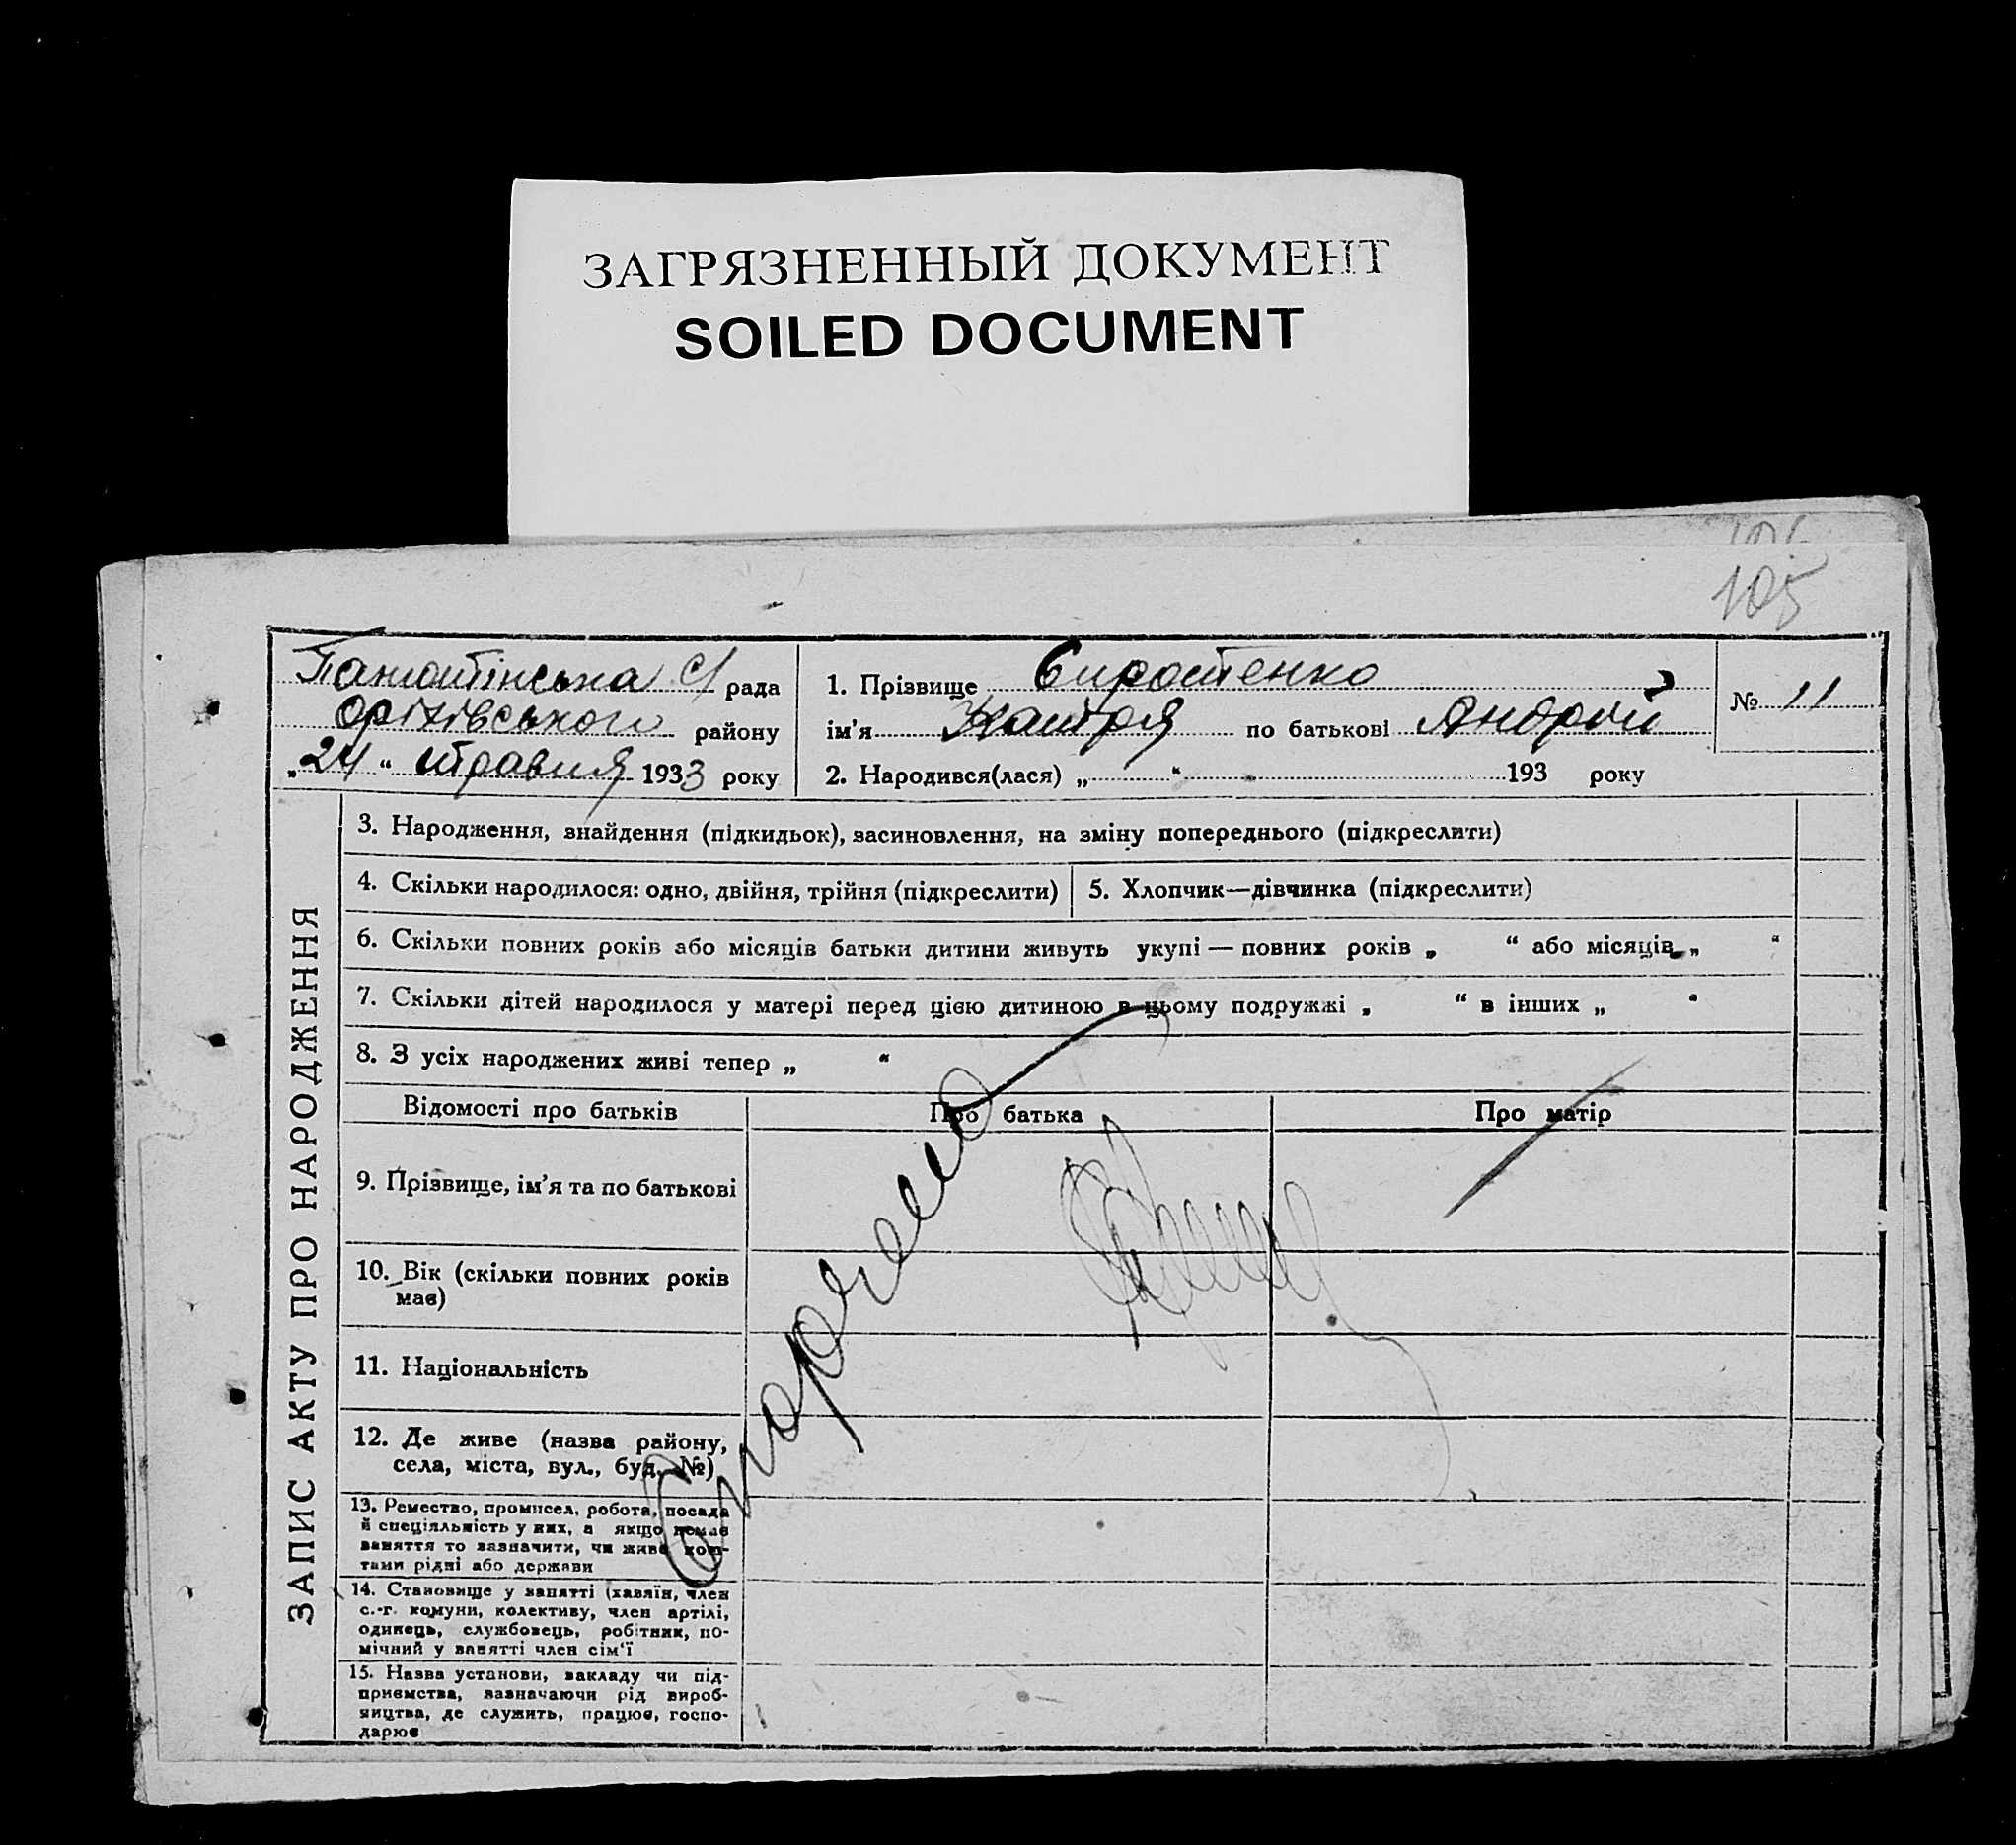 ЗАГРЯЗНЕННЫЙ ДОКУМЕНТ
SOILED DOCUMENT
105
с/рада
Оріхівського району
„24“ травня 1933 року
1. Прізвище Сиротенко
ім’я по батькові Андрій
№ 11
2. Народився(лася) „ “ 193 року
ЗАПИС АКТУ ПРО НАРОДЖЕННЯ
3. Народження, знайдення (підкидьок), засиновлення, на зміну попереднього (підкреслити)
4. Скільки народилося: одно, двійня, трійня (підкреслити)
5. Хлопчик—дівчинка (підкреслити)
6. Скільки повних років або місяців батьки дитини живуть укупі — повних років „ “ або місяців „ “
7. Скільки дітей народилося у матері перед цією дитиною в цьому подружжі „ “ в інших „ “
8. З усіх народжених живі тепер „ “
Відомості про батьків
Про батька
Про матір
9. Прізвище, ім’я та по батькові
10. Вік (скільки повних років
має)
11. Національність
12. Де живе (назва району,
села, міста, вул., буд. №)
13. Ремество, промисел, робота, посада
й спеціяльність у них, а якщо немає
заняття то зазначити, чи живе кош-
тами рідні або держави
14. Становище у занятті (хазяїн, член
с.-г. комуни, колективу, член артілі,
одинець, службовець, робітник, по-
мічний у занятті член сім‘ї
15. Назва установи, закладу чи під-
приємства, зазначаючи рід вироб-
ництва, де служить, працює, госпо-
дарює